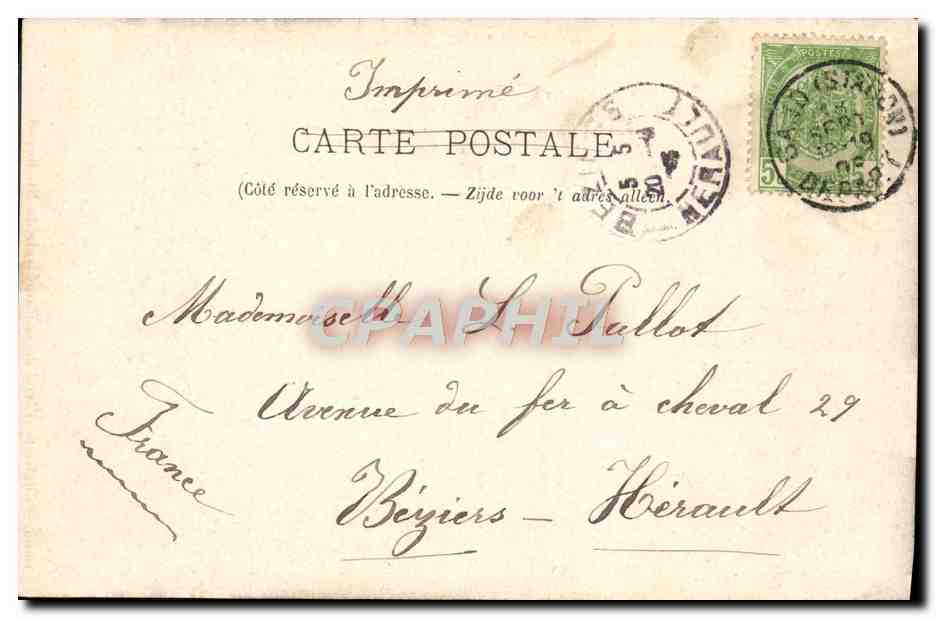 Imprimé
CARTE POSTALE
(Côté réservé à l'adresse. — Zijde voor 't adres alleen.
POSTES
5
GAND (STATION)
DEPART
BEZIERS
HERAULT
Mademoiselle L. Pullot
CPAPHIL
Avenue du fer à cheval 29
Béziers — Hérault
France